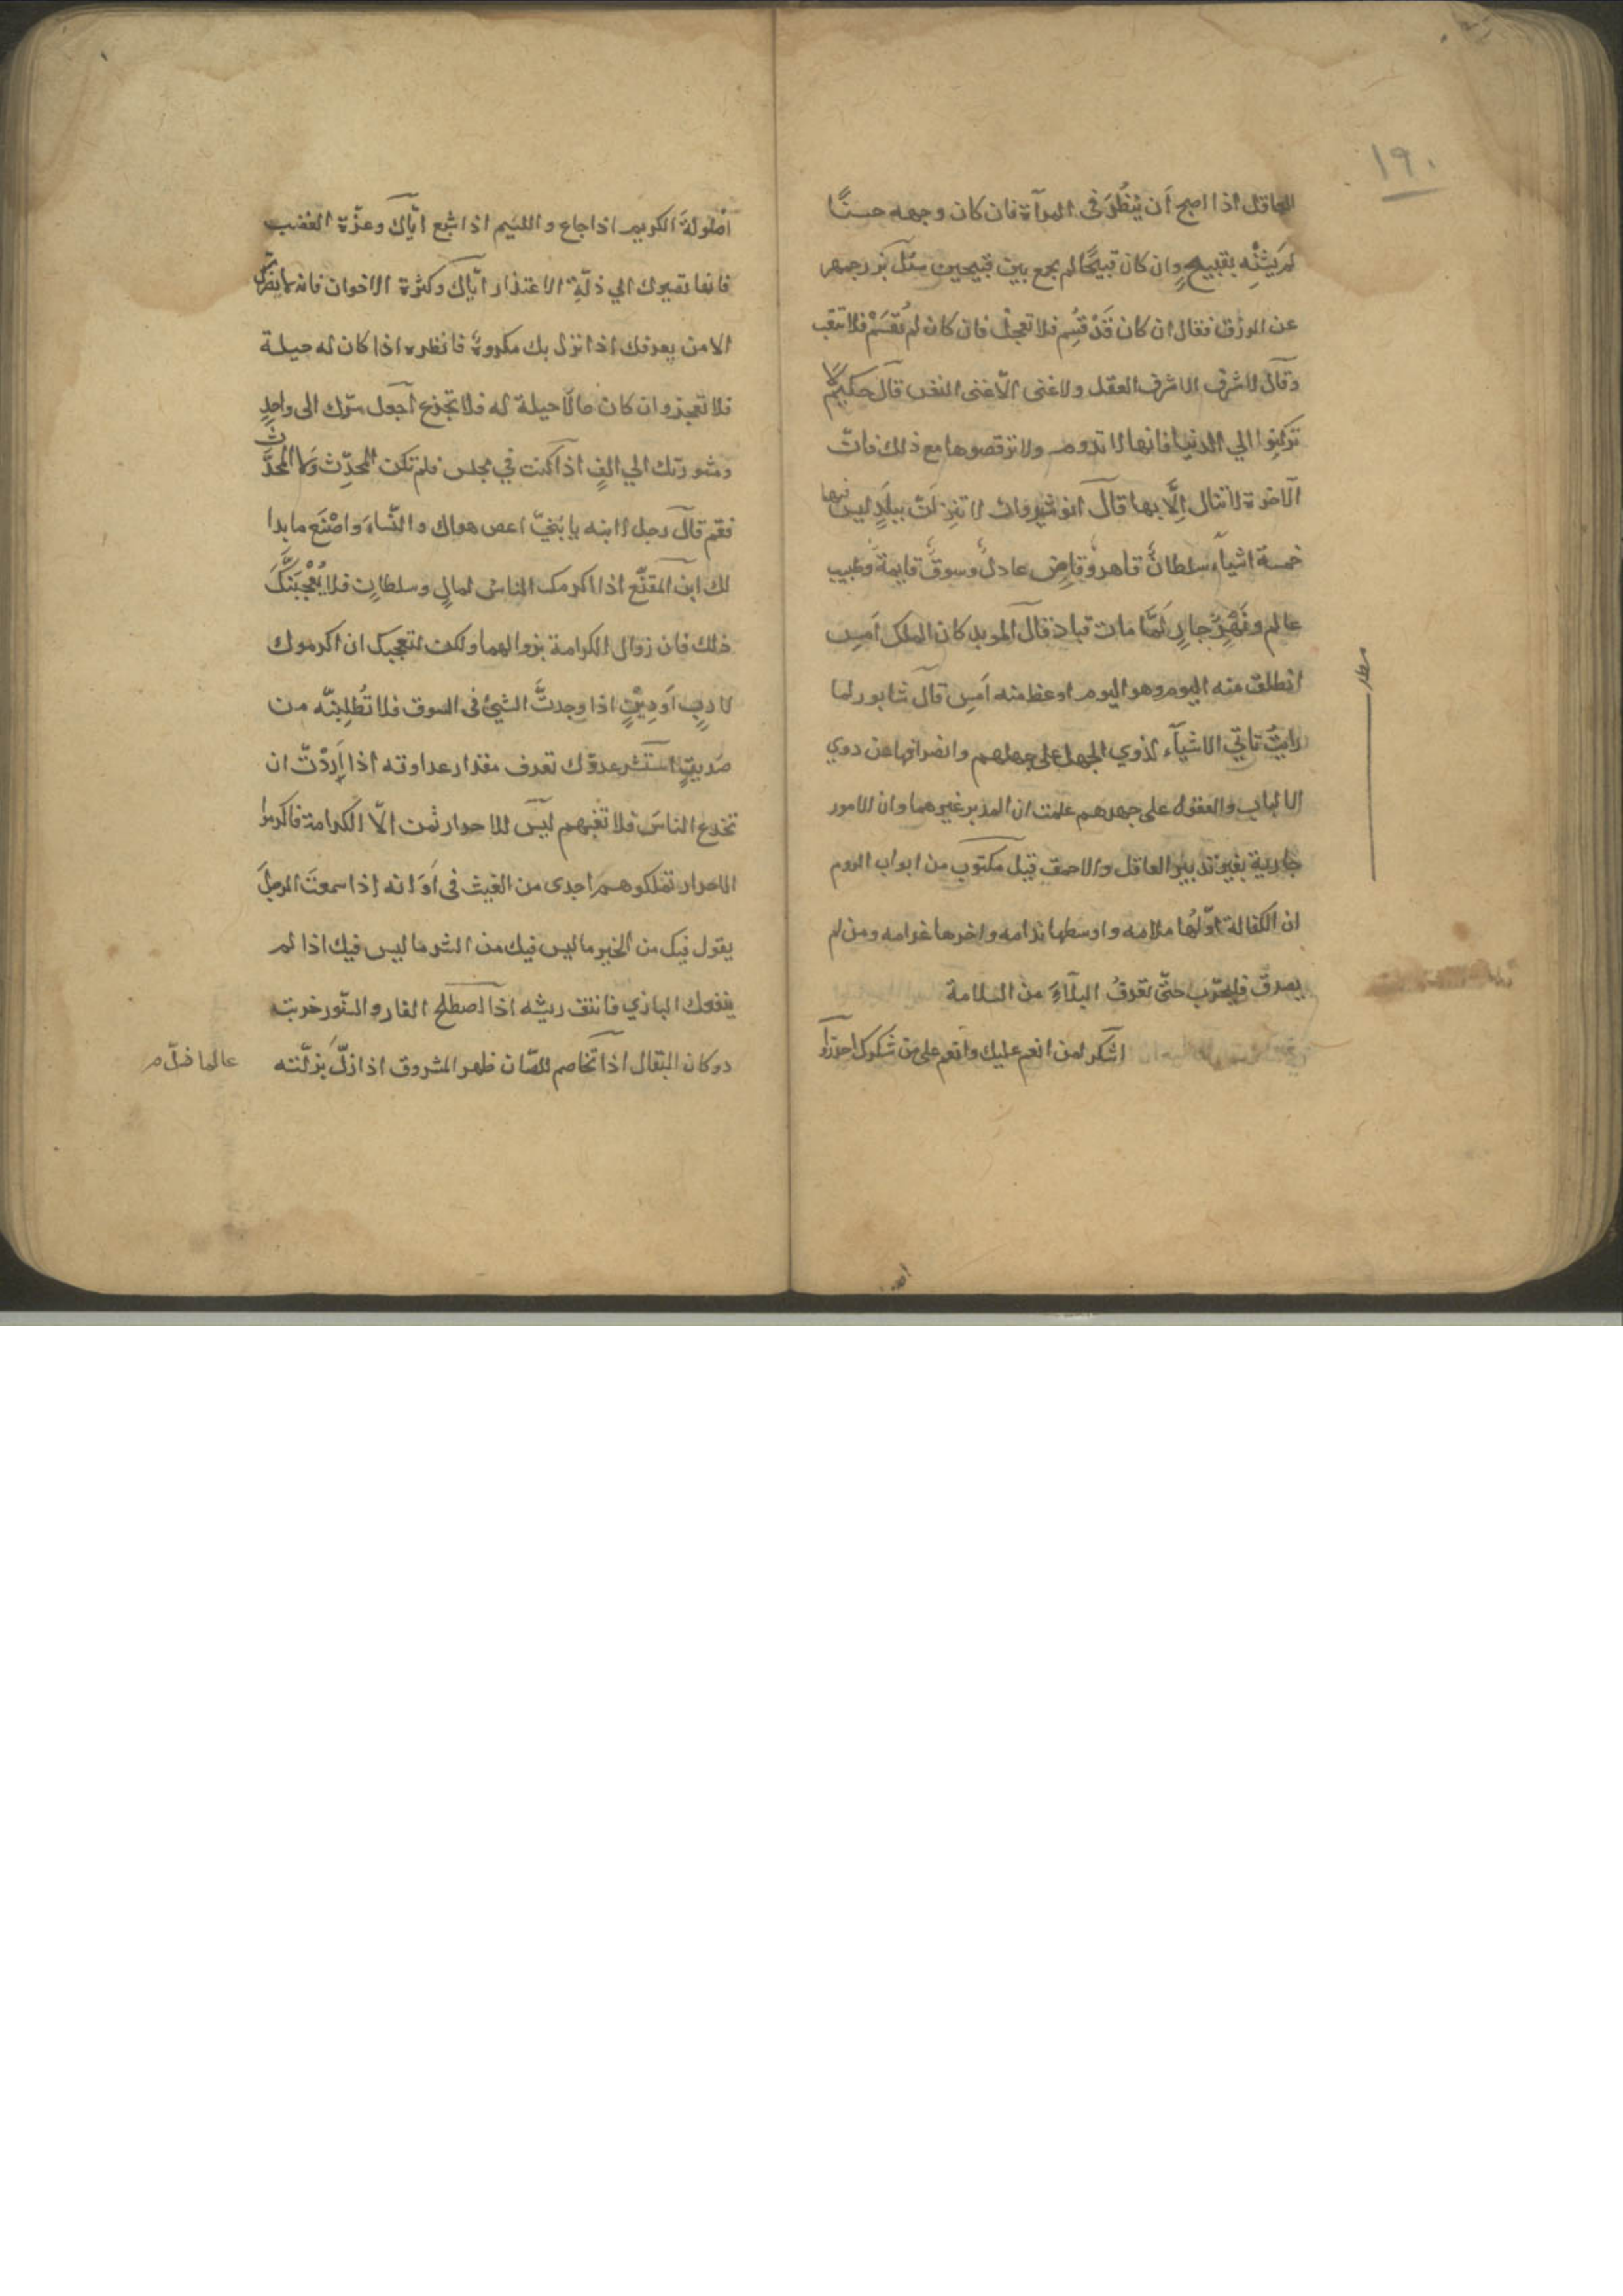 ١٩٠
العاقل اذا اصبح اَن يَنظُرَ فى المرآة فان كان وجهه حسنًا
لم يَشِنْه بقبيحٍ وان كان قبيحًا لم يجمع بين قبيحين سئل بزرجمهر
عن الرزق فقال ان كان قَدْ قُسِم فلا تعجل فان كان لم يُقْسَمْ فلا تتعب
وقال لا شرف الا شرف العقل ولا غنى الّا غنى النفس قال حكيمٌ لا
تركنوا الي الدنيا فانها لا تدوم ولا ترفضوها مع ذلك فانّ
الآخرة لا تنال اِلَّا بها قال انوشيروان لا تنزلَنّ ببلَدٍ ليس فيها
خمسة اشيآء سلطانٌ قاهر وقاضٍ عادلٌ وسوقٌ قايمةٌ وطبيب
عالم ونَهْرٌ جارٍ لَمَّا مات قباد قال الموبد كان الملك اَمسِ
انطلق منه اليوم وهو اليوم اوعظ منه اَمسِ قال شابور لما
رايتُ تاتي الاشيآء لذوي الجهل على جهلهم وانصرافها عن ذوي
الالباب والعقول على جهدهم علمت ان المدبر غيرهما وان الامور
جارية بغير تدبير العاقل والاحمق قيل مكتوب من ابواب الروم
ان الكفالة اوّلُها ملامه واوسطها ندامه واخرها غرامه ومن لم
يصدق فليجرّب حتّى تعرفُ البلآءَ من السلامة
اشكر لمن انعم عليك وانعم على من شكرك احذروا
صولةَ الكريم اذا جاع واللئيم اذا شبع ايّاك وعزّة الغضب
فانها تصيرك الي ذلّةِ الاعتذار ايّاك وكثرة الاخوان فانه لا يضرّك
الا من يعرفك اذا نزل بك مكروهٌ فانظره اذا كان له حيلة
فلا تعجز وان كان مالا حيلة له فلا تجزع آجعل سرّك الى واحدٍ
ومشورتك الي الفٍ اذا كنت في مجلس فلم تكن المحدِّث وَلا المحدَّث
فقم قال رجل لابنه يا بُنيّ اعص هواك والنّساءَ واصْنَع ما بدا
لك ابن المقفّع اذا اكرمك الناس لمالٍ وسلطانٍ فلا يُعْجِبَنَّكَ
ذلك فان زوال الكرامة بزوالهما ولكن لتعجبك ان اكرموك
لادبٍ اَو دِيْنٍ اذا وجدتَّ الشيئ فى السوق فلا تُطلبنّه من
صديقٍ استشر عدوّك تعرف مقدار عداوته اذا اَردْتّ ان
تخدع الناسَ فلا تغبهم ليس للاحرار ثمن الّا الكرامة فاكرموا
الاحرار تملكوهم اجدى من الغيث فى اَوَانه اذا سمعتَ الرجلَ
يقول فيك من الخير ما ليس فيك من الشر ما ليس فيك اذا لم
ينفعك البازي فانتف ريشه اذا اصطلح الفار والسنّور خربت
دوكان البقال اذا تخاصم اللصّان ظهر المشروق اذا زلّ بزلّته